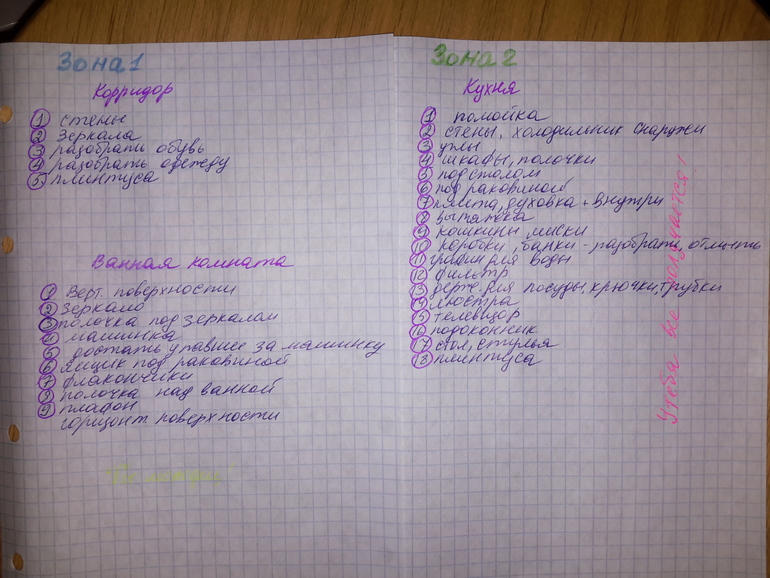 Зона 1
Корридор
1 стены
2 Зеркала
3 разобрать обувь
4 разобрать одежду
5 плинтуса
Ванная комната
1 Верт. поверхности
2 Зеркало
3 полочка под зеркалом
4 машинка
5 достать упавшее за машинку
6 ящик под раковиной
7 флакончики
8 полочка над ванной
9 плафон
горизонт. поверхности
Зона 2
Кухня
1 помойка
2 стены, холодильник снаружи
3 углы
4 шкафы, полочки
5 под столом
6 под раковиной
7 плита, духовка + внутри
8 вытяжка
9 кошкины миски
10 коробки, банки - разобрать, отмыть
11 графин для воды
12 фильтр
13 держ. для посуды, крючки, трубки
14 люстра
15 телевизор
16 подоконник
17 стол, стулья
18 плинтуса
У тебя все получается!